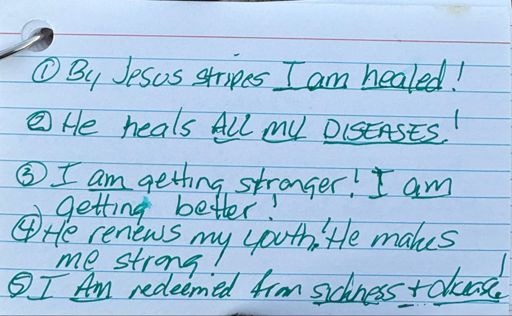 ① By Jesus stripes I am healed!
② He heals ALL MY DISEASES.!
③ I am getting stronger! I am
getting better!
④ He renews my youth! He makes
me strong
⑤ I Am redeemed from sickness + disease!